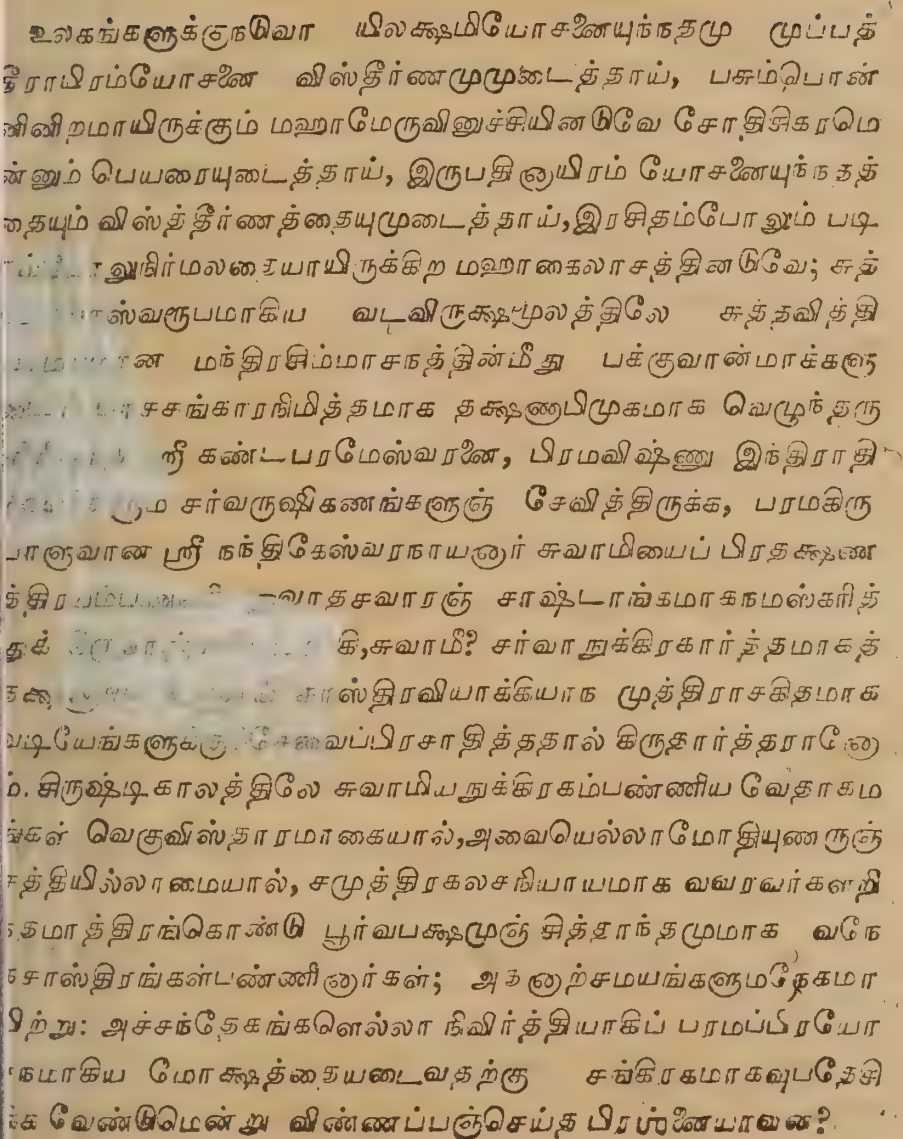 உலகங்களுக்குநடுவா யிலக்ஷமியோசனையுந்நதமு முப்பத்
தீராயிரம்யோசனை விஸ்தீர்ணமுமுடைத்தாய், பசும்பொன்
னினிறமாயிருக்கும் மஹாமேருவினுச்சியினடுவே சோதிசிகரமெ
ன்னும் பெயரையுடைத்தாய், இருபதினாயிரம் யோசனையுந்நதத்
தையும் விஸ்த்தீர்ணத்தையுமுடைத்தாய்,இரசிதம்போலும் படி
லுநிர்மலதையாயிருக்கிற மஹாகைலாசத்தினடுவே; சுத்
ஸ்வரூபமாகிய வடவிருக்ஷமூலத்திலே சுத்தவித்தி
ன மந்திரசிம்மாசநத்தின்மீது பக்குவான்மாக்களு
சசங்காரநிமித்தமாக தக்ஷணாபிமுகமாக வெழுந்தரு
ஸ்ரீ கண்டபரமேஸ்வரனை, பிரமவிஷ்ணு இந்திராதி
சர்வருஷிகணங்களுஞ் சேவித்திருக்க, பரமகிரு
பாளுவான ஸ்ரீ நந்திகேஸ்வரநாயனார் சுவாமியைப் பிரதக்ஷண
வாதசவாரஞ் சாஷ்டாங்கமாகநமஸ்கரித்
துக் கி,சுவாமீ? சர்வாநுக்கிரகார்த்தமாகத்
சாஸ்திரவியாக்கியாந முத்திராசகிதமாக
வடியேங்களுக்கு சேவைப்பிரசாதித்ததால் கிருதார்த்தரானோ
ம். சிருஷ்டிகாலத்திலே சுவாமியநுக்கிரகம்பண்ணிய வேதாகம
ங்கள் வெகுவிஸ்தாரமாகையால்,அவையெல்லாமோதியுணருஞ்
சத்தியில்லாமையால், சமுத்திரகலசநியாயமாக வவரவர்களறி
ந்தமாத்திரங்கொண்டு பூர்வபக்ஷமுஞ் சித்தாந்தமுமாக வநே
கசாஸ்திரங்கள்பண்ணினார்கள்; அதனாற்சமயங்களுமநேகமா
யிற்று: அச்சந்தேகங்களெல்லா நிவிர்த்தியாகிப் பரமப்பிரயோ
சநமாகிய மோக்ஷத்தையடைவதற்கு சங்கிரகமாகவுபதேசி
க்க வேண்டுமென்று விண்ணப்பஞ்செய்த பிரஶ்னையாவன?